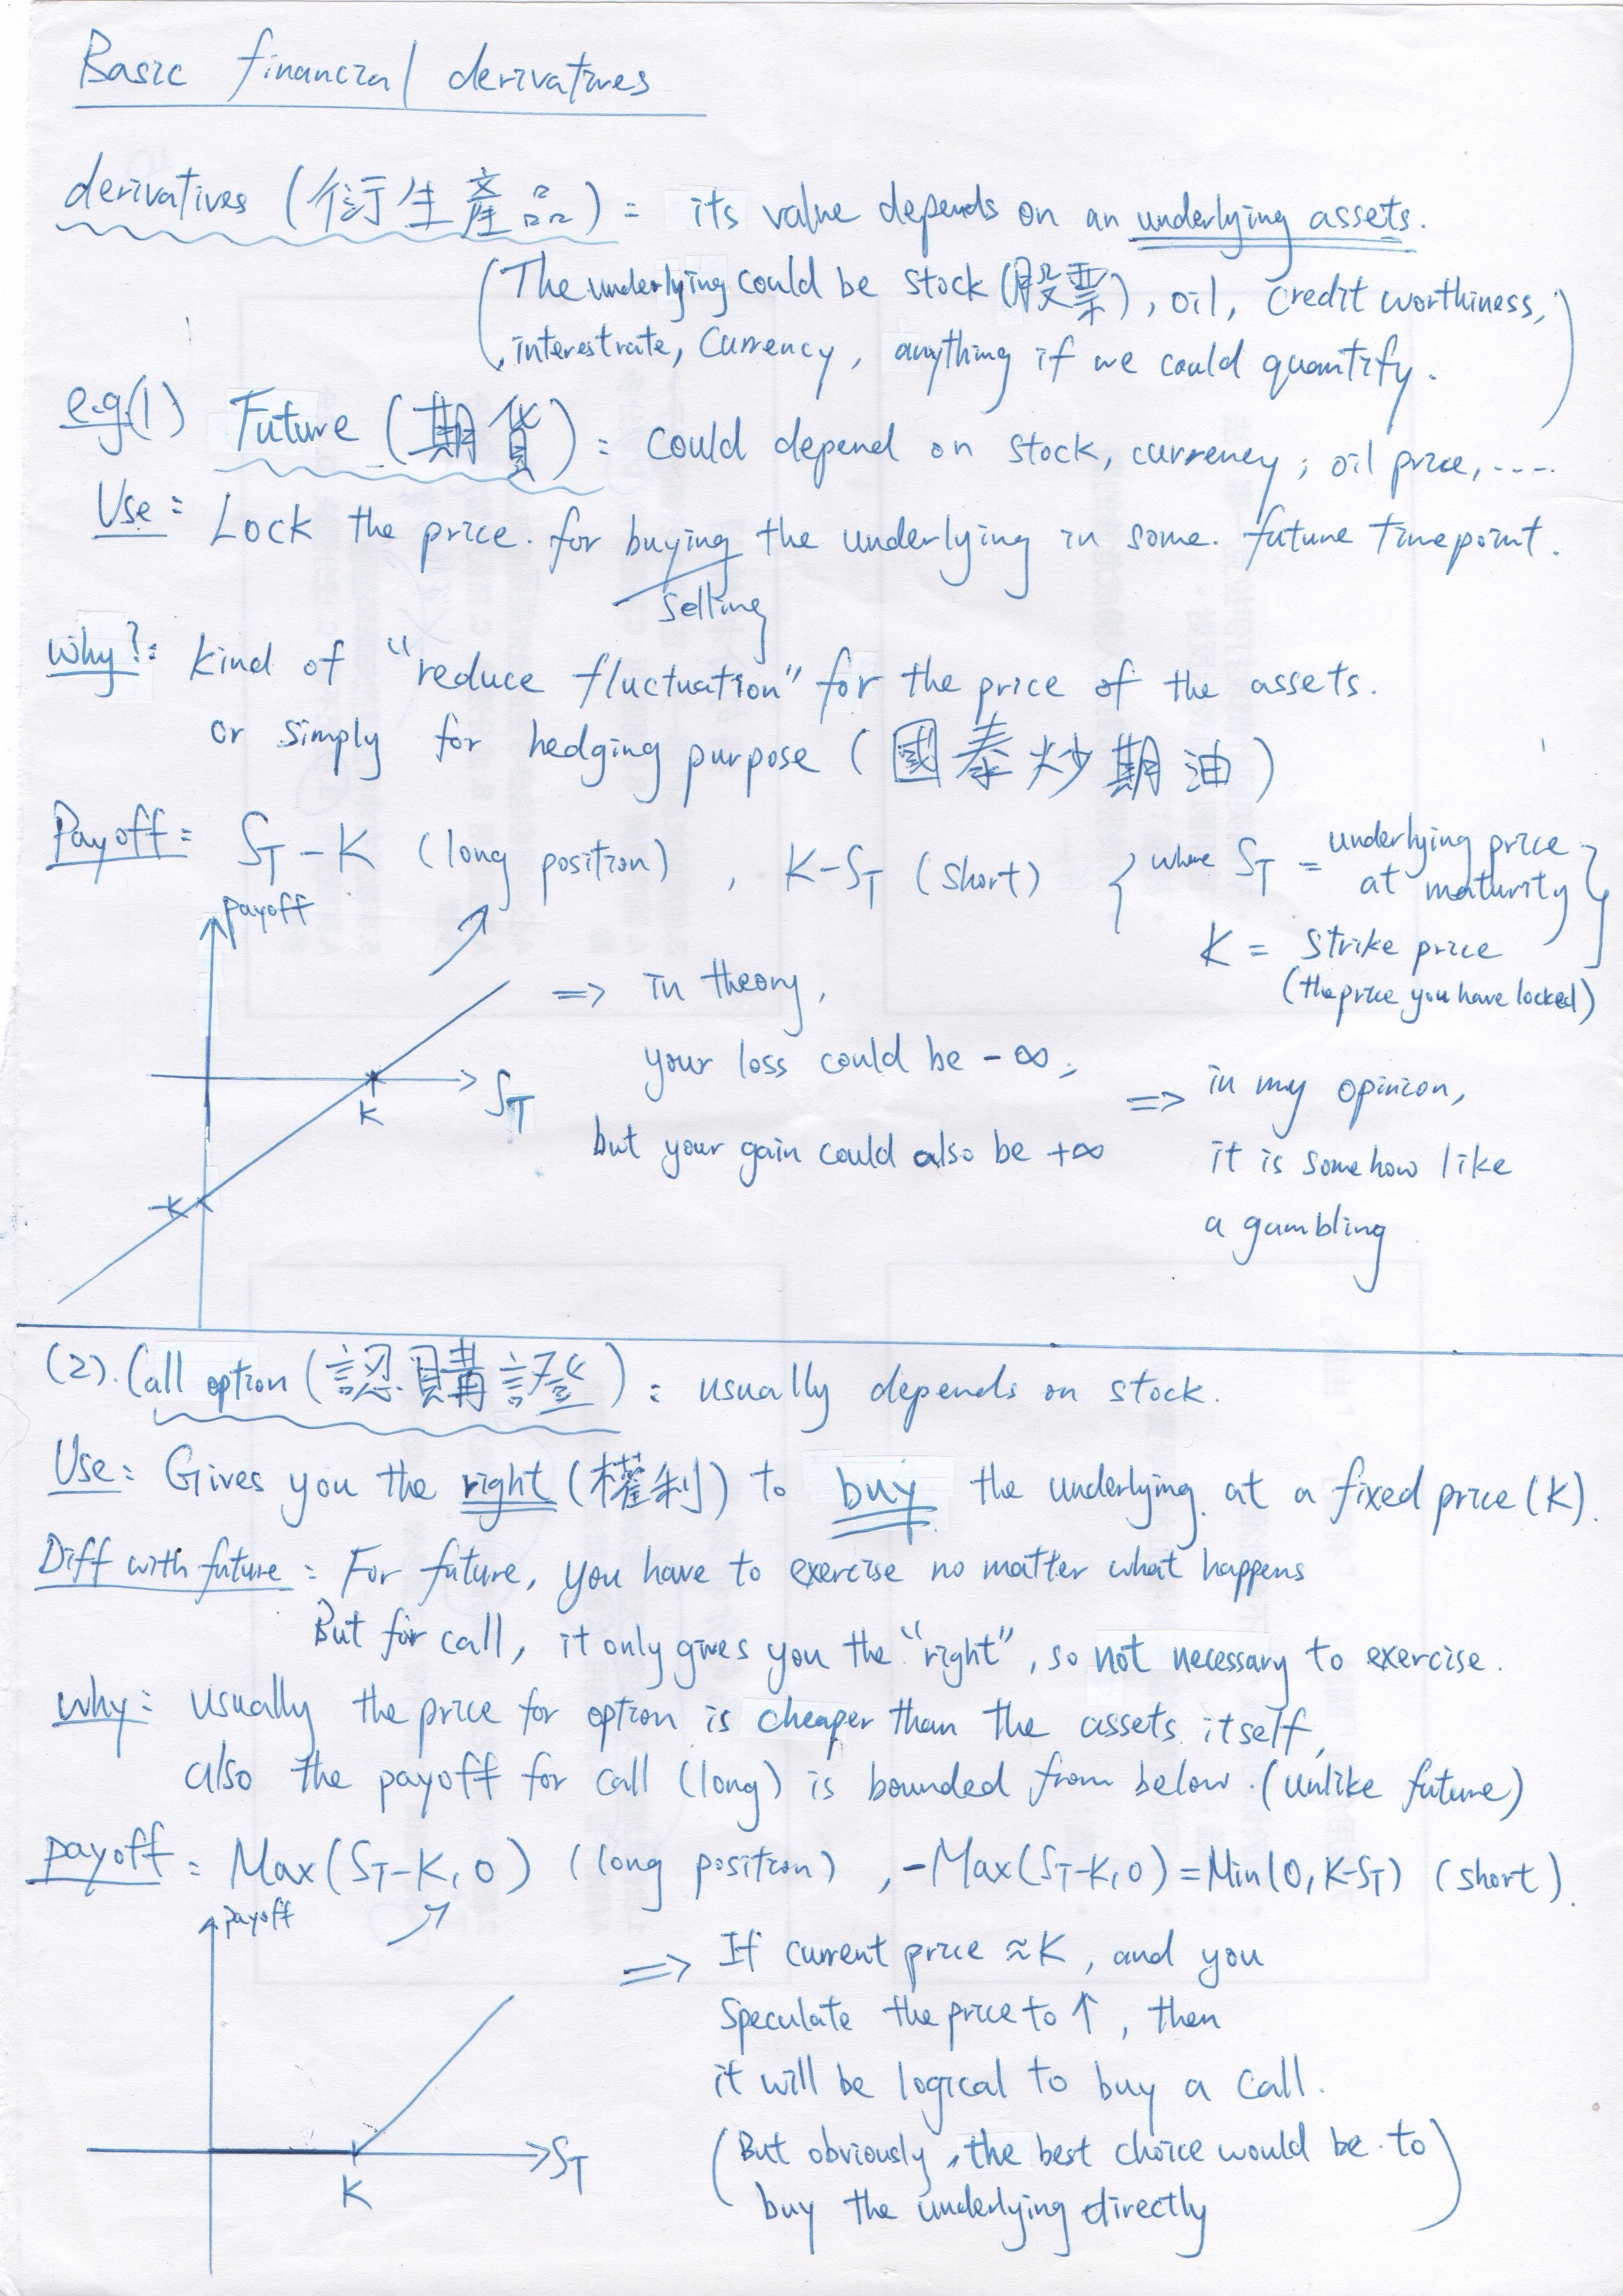 Basic financial derivatives
derivatives (衍生產品) : its value depends on an underlying assets.
(The underlying could be stock (股票), oil, credit worthiness,
interest rate, currency, anything if we could quantify.)
e.g.(1) Future (期貨) : could depend on stock, currency, oil price, ....
Use : Lock the price. for buying the underlying in some. future timepoint.
selling
Why? : kind of "reduce fluctuation" for the price of the assets.
or simply for hedging purpose (國泰炒期油)
Payoff : S_T - K (long position) , K - S_T (short) { where S_T = underlying price
at maturity
K = strike price
(the price you have locked) }
payoff
S_T
K
-K
⇒ in theory,
your loss could be -∞,
but your gain could also be +∞
⇒ in my opinion,
it is somehow like
a gambling
(2). Call option (認購證) : usually depends on stock.
Use : Gives you the right (權利) to buy the underlying at a fixed price (K).
Diff with future : For future, you have to exercise no matter what happens
But for call, it only gives you the "right", so not necessary to exercise.
Why : usually the price for option is cheaper than the assets itself,
also the payoff for call (long) is bounded from below. (unlike future)
payoff : Max(S_T-K, 0) (long position) , -Max(S_T-K, 0) = Min(0, K-S_T) (short).
payoff
S_T
K
⇒ If current price ≈ K, and you
speculate the price to ↑, then
it will be logical to buy a call.
(But obviously, the best choice would be to
buy the underlying directly)